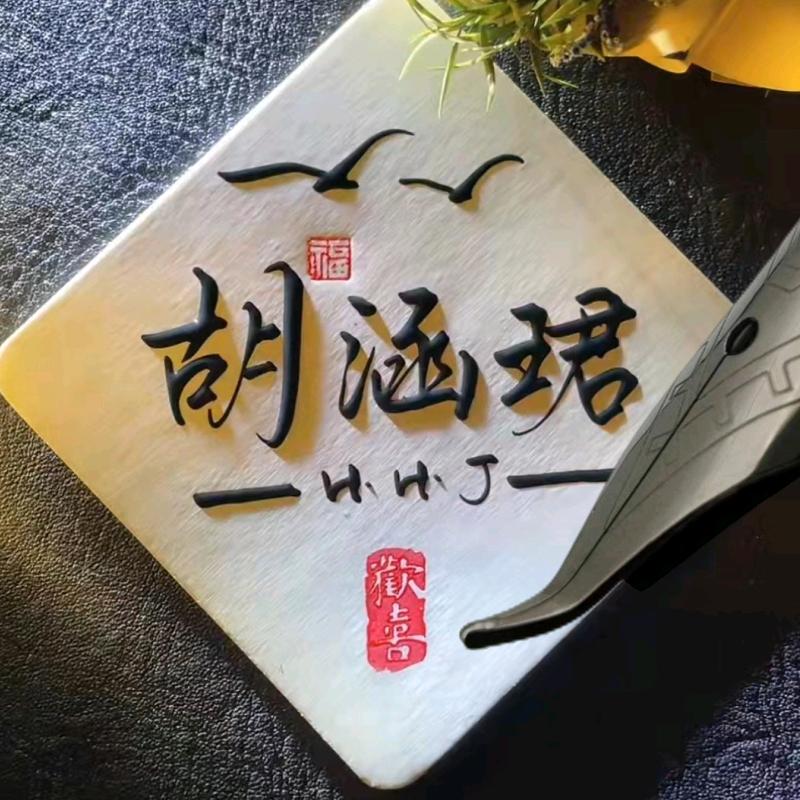 福
胡涵珺
H.H.J
歡喜